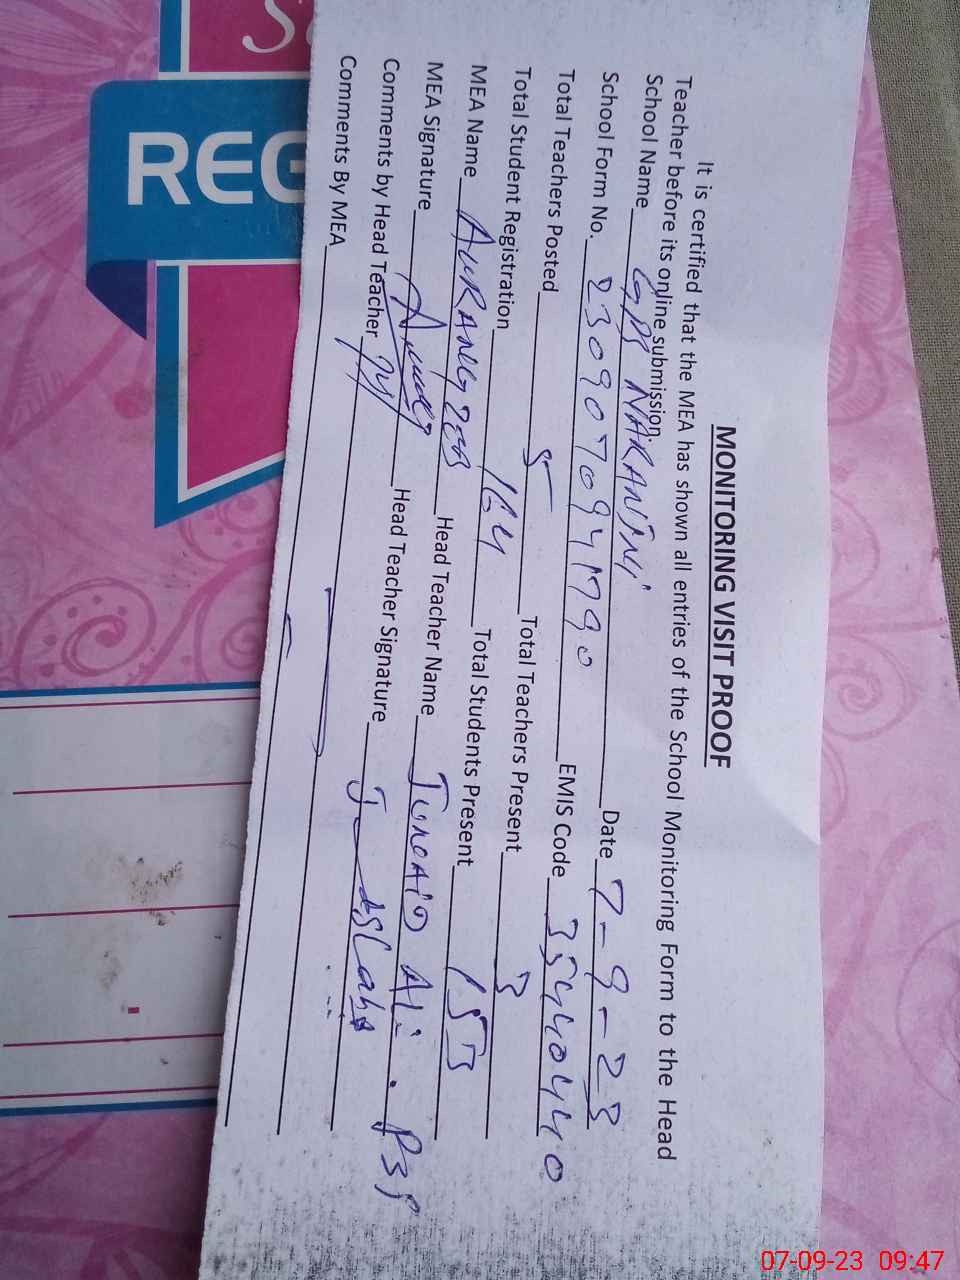 MONITORING VISIT PROOF
It is certified that the MEA has shown all entries of the School Monitoring Form to the Head
Teacher before its online submission.
School Name GPS NARANJI Date 7-9-23
School Form No. 2309070941790 EMIS Code 35440440
Total Teachers Posted 5 Total Teachers Present 3
Total Student Registration 164 Total Students Present 153
MEA Name AURANGZEB Head Teacher Name JUNAID Ali
MEA Signature Head Teacher Signature
Comments by Head Teacher
Comments By MEA
REG
07-09-23 09:47